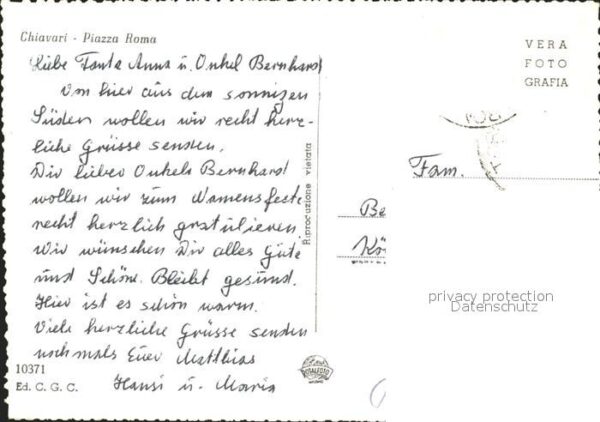 Chiavari - Piazza Roma
Liebe Tante Anna u. Onkel Bernhard
Von hier aus dem sonnigen
Süden wollen wir recht herz-
liche Grüsse senden.
Dir lieber Onkel Bernhard
wollen wir zum Namensfeste
recht herzlich gratulieren
Wir wünschen Dir alles Gute
und Schöne. Bleibt gesund.
Hier ist es schön warm.
Viele herzliche Grüsse senden
nochmals Euer Matthias
Hansi u. Maria
10371
Ed. C. G. C.
Riproduzione vietata
VERA
FOTO
GRAFIA
Fam.
Be
Kö
privacy protection
Datenschutz